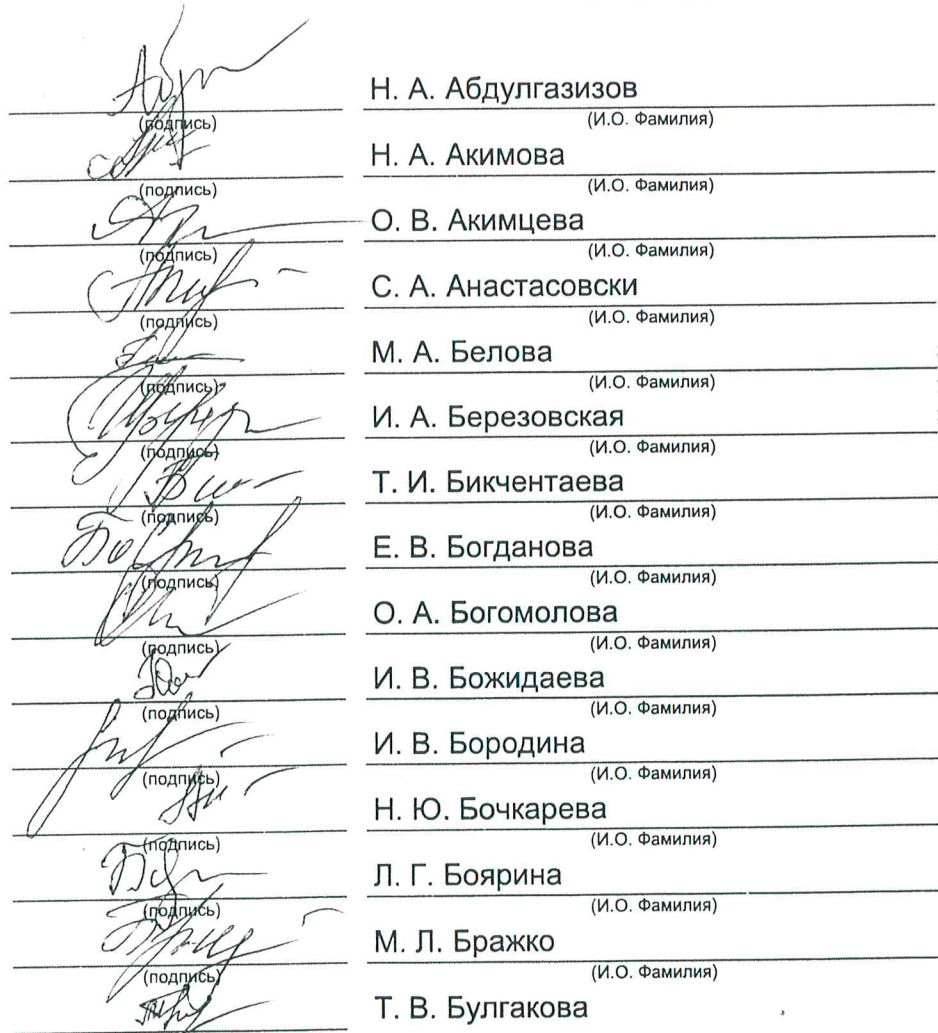 Н. А. Абдулгазизов
(подпись) (И.О. Фамилия)
Н. А. Акимова
(подпись) (И.О. Фамилия)
О. В. Акимцева
(подпись) (И.О. Фамилия)
С. А. Анастасовски
(подпись) (И.О. Фамилия)
М. А. Белова
(подпись) (И.О. Фамилия)
И. А. Березовская
(подпись) (И.О. Фамилия)
Т. И. Бикчентаева
(подпись) (И.О. Фамилия)
Е. В. Богданова
(подпись) (И.О. Фамилия)
О. А. Богомолова
(подпись) (И.О. Фамилия)
И. В. Божидаева
(подпись) (И.О. Фамилия)
И. В. Бородина
(подпись) (И.О. Фамилия)
Н. Ю. Бочкарева
(подпись) (И.О. Фамилия)
Л. Г. Боярина
(подпись) (И.О. Фамилия)
М. Л. Бражко
(подпись) (И.О. Фамилия)
Т. В. Булгакова